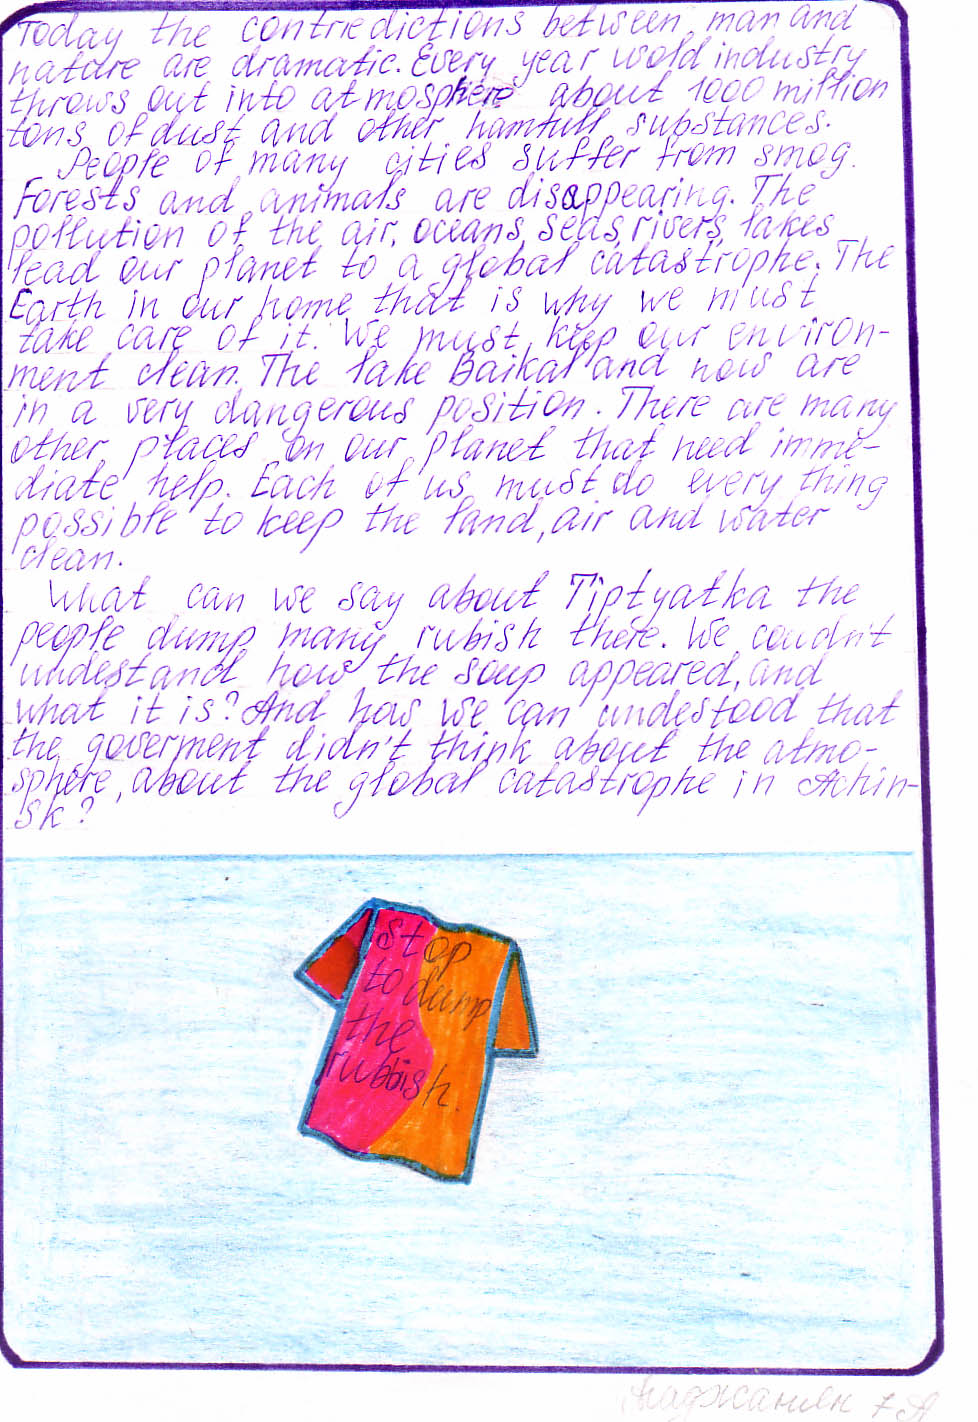 Today the contriedictions between man and
nature are dramatic. Every year world industry
throws out into atmosphere about 1000 million
tons of dust and other hamfull substances.
People of many cities suffer from smog.
Forests and animals are disappearing. The
pollution of the air, oceans, seas, rivers, lakes
lead our planet to a global catastrophe. The
Earth in our home that is why we must
take care of it. We must keep our environ-
ment clean. The lake Baikal and now are
in a very dangerous position. There are many
other places on our planet that need imme-
diate help. Each of us must do every thing
possible to keep the land, air and water
clean.
What can we say about Tiptyatka the
people dump many rubish there. We coudn't
undestand how the soup appeared, and
what it is? And how we can undestood that
the goverment didn't think about the atmo-
sphere, about the global catastrophe in Achin-
sk?
Stop
to dump
the
rubbish.
7 А